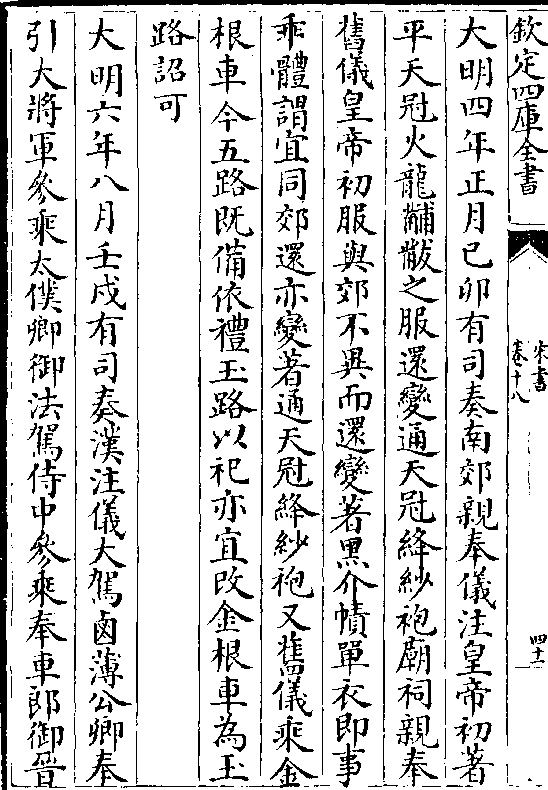 欽定四庫全書
宋書
卷十八
四十一
大明四年正月己卯有司奏南郊親奉儀注皇帝初著
平天冠火龍黼黻之服還變通天冠絳紗袍廟祠親奉
舊儀皇帝初服與郊不異而還變著黑介幘單衣即事
乖體謂宜同郊還亦變著通天冠絳紗袍又舊儀乘金
根車今五路既備依禮玉路以祀亦宜改金根車為玉
路詔可
大明六年八月壬戌有司奏漢注儀大駕鹵薄公卿奉
引大將軍參乘太僕卿御法駕侍中參乘奉車郎御晉